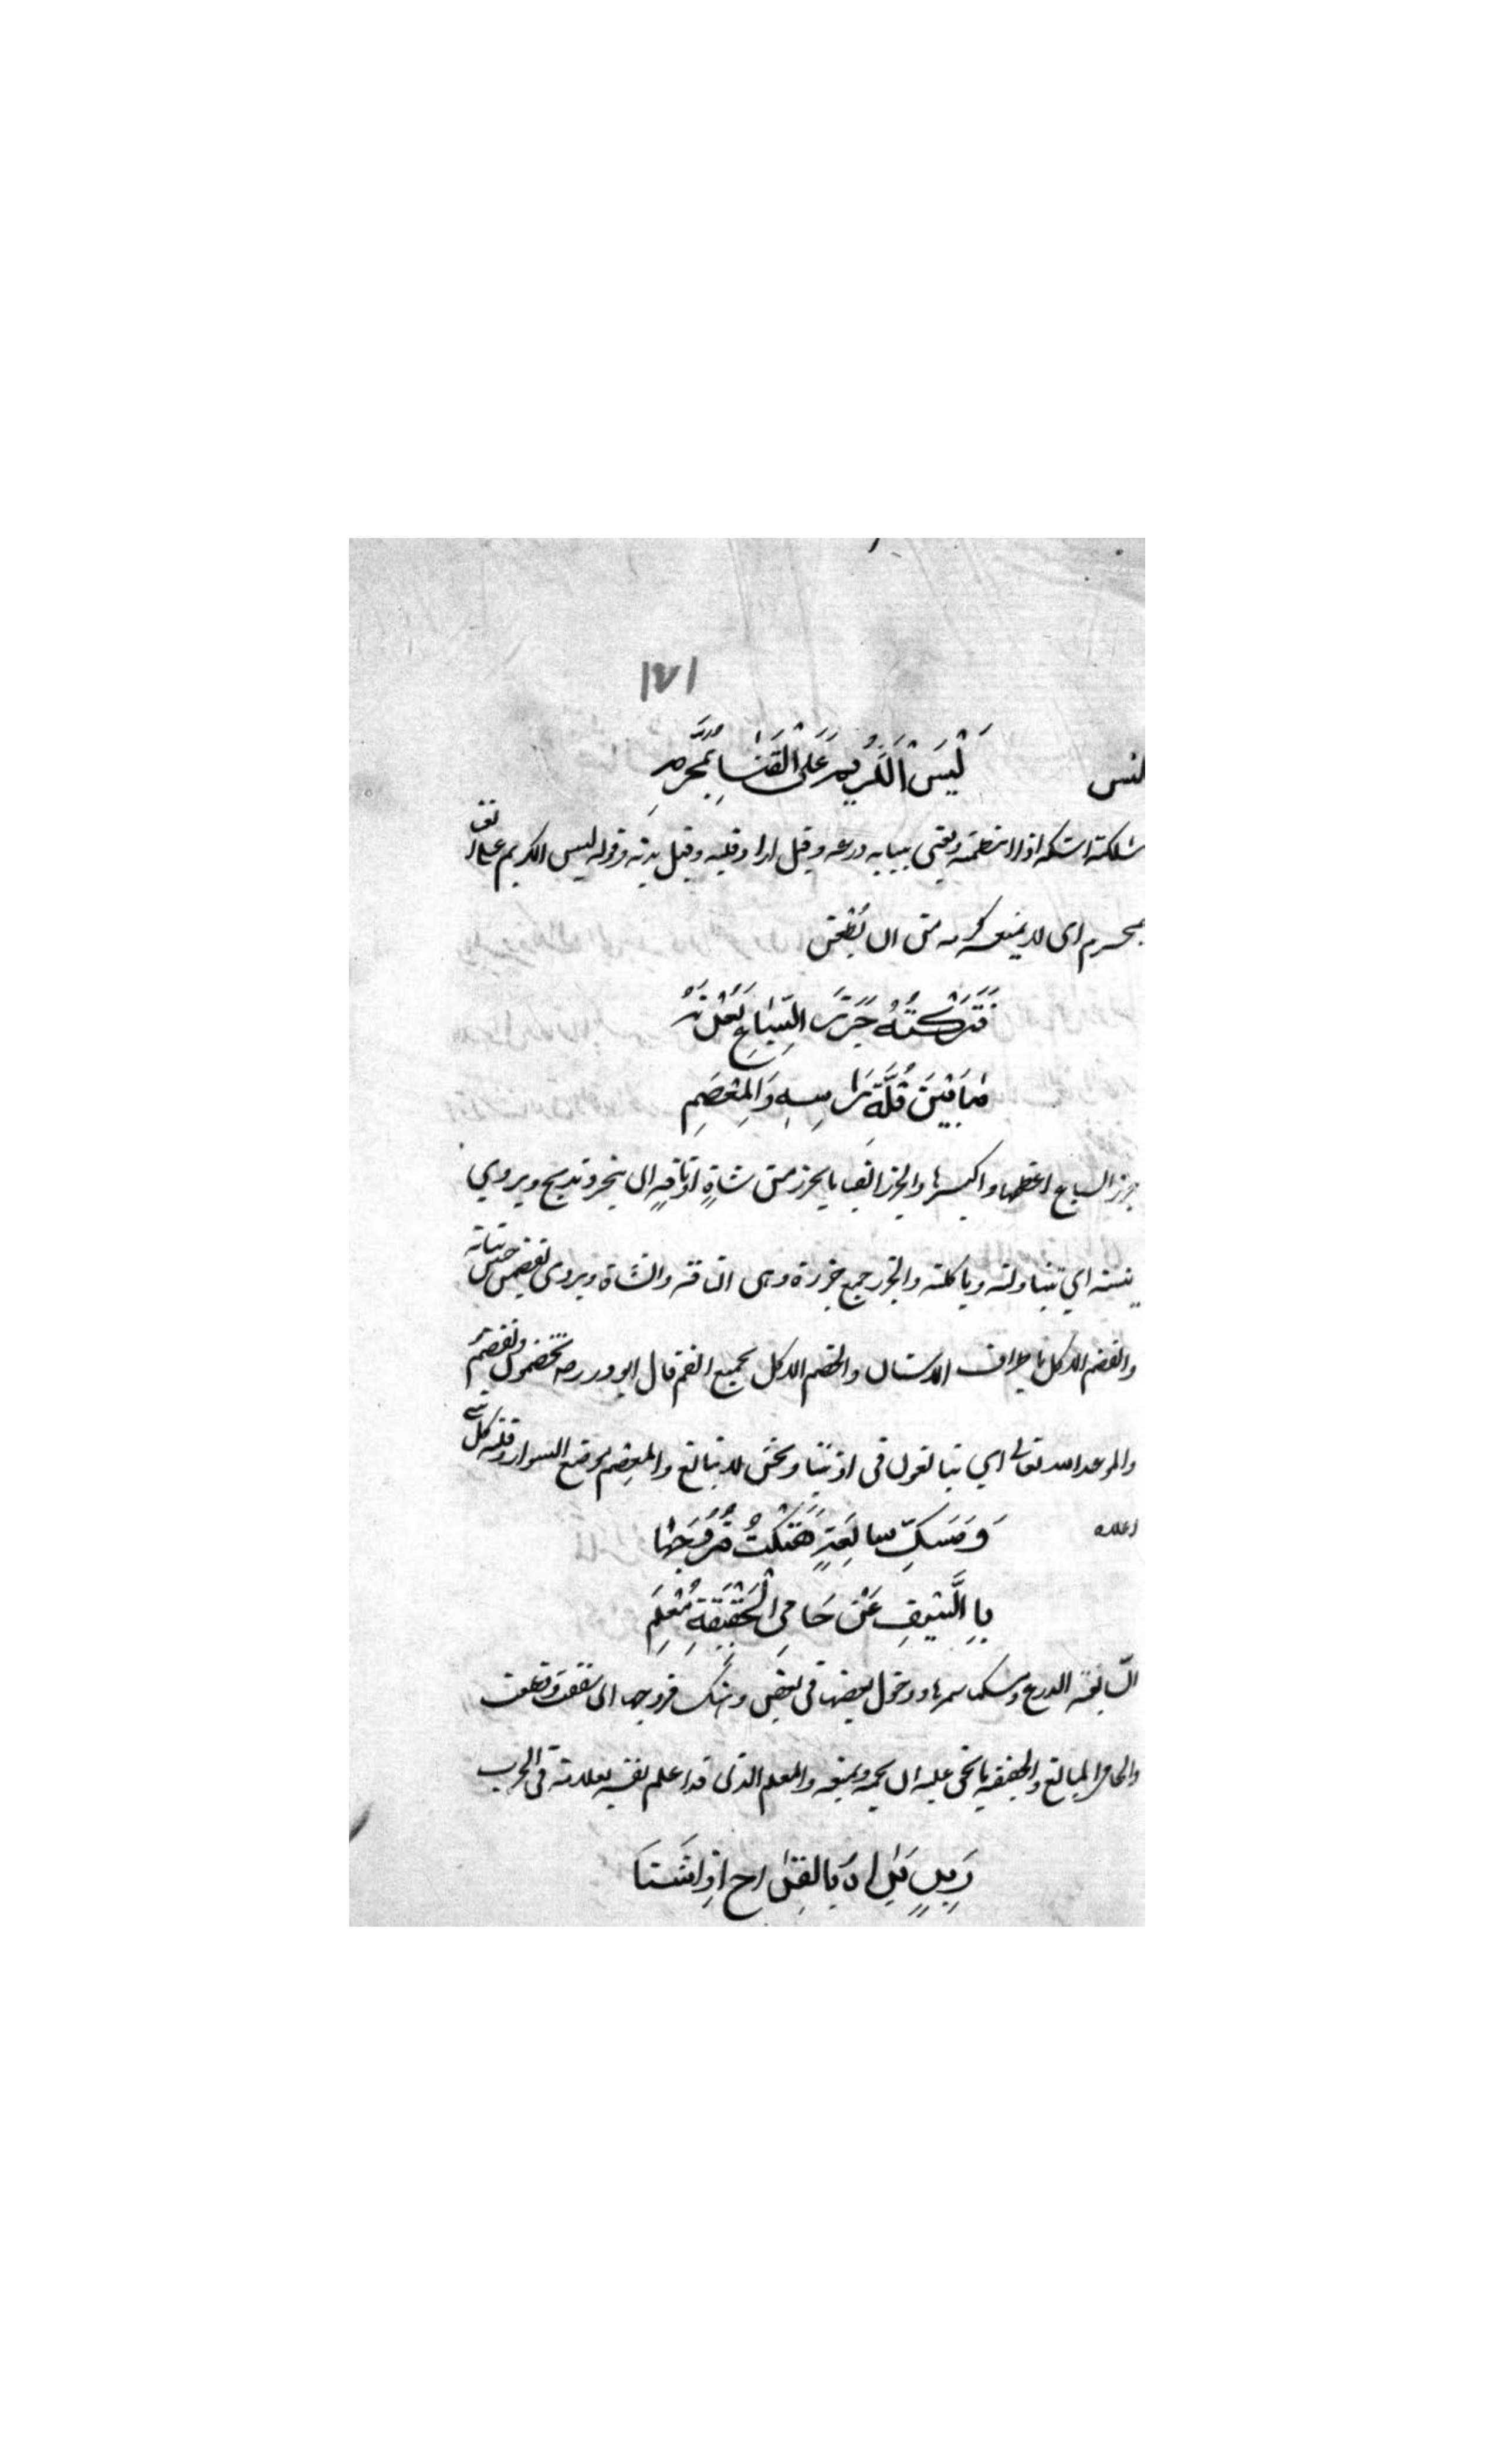 ١٧١
لَيْسَ الْكَرِيمُ عَلَى الْقَنَا بِمُحَرَّمِ
شككته اشكه اذا انتظمته ويعني بثيابه درعه وقيل اراد قلبه وقيل بدنه وقوله ليس الكريم على القنا
بمحرم اى لا يمنعه كرمه من ان يُطْعَن
فَتَرَكْتُهُ جَزَرَ السِّبَاعِ
مَا بَيْنَ قُلَّةِ رَاسِهِ وَالمِعْصَمِ
جزر السباع والجزر ايضا ما يجزر من شاةٍ او ناقةٍ اى ينحر وتذبح ويروي
ينشنه اي يتناولنه وياكلنه والجزر جمع جزرة وهى الناقة والشاة ويروى يقضمن حسن بنانه
والقضم الاكل باطراف الاسنان والخضم الاكل بجميع الفم قال ابو ذر رضه تخضمون ونقضم
والموعد الله تعالى اي تبالغون فى اذيتنا ونحن لا نبالغ والمعصم موضع السوار وقلة كل شي
اعلاه
وَمَسَكِّ سابِغَةٍ هَتَكْتُ فُرُوجَها
بِالسَّيْفِ عَنْ حَامِى الْحَقِيْقَةِ مُعْلِمِ
السابغة الدرع ومسكها سمرها ودخول بعضها فى بعض وهتك فروجها اى شققت وقطعت
والحامى المانع والحقيقة ما يحق عليه ان يحميه ويمنعه والمعلم الذى قد اعلم نفسه بعلامة فى الحرب
رَبِذٍ يَدَاهُ بِالقِدَاحِ اذا شَتَا